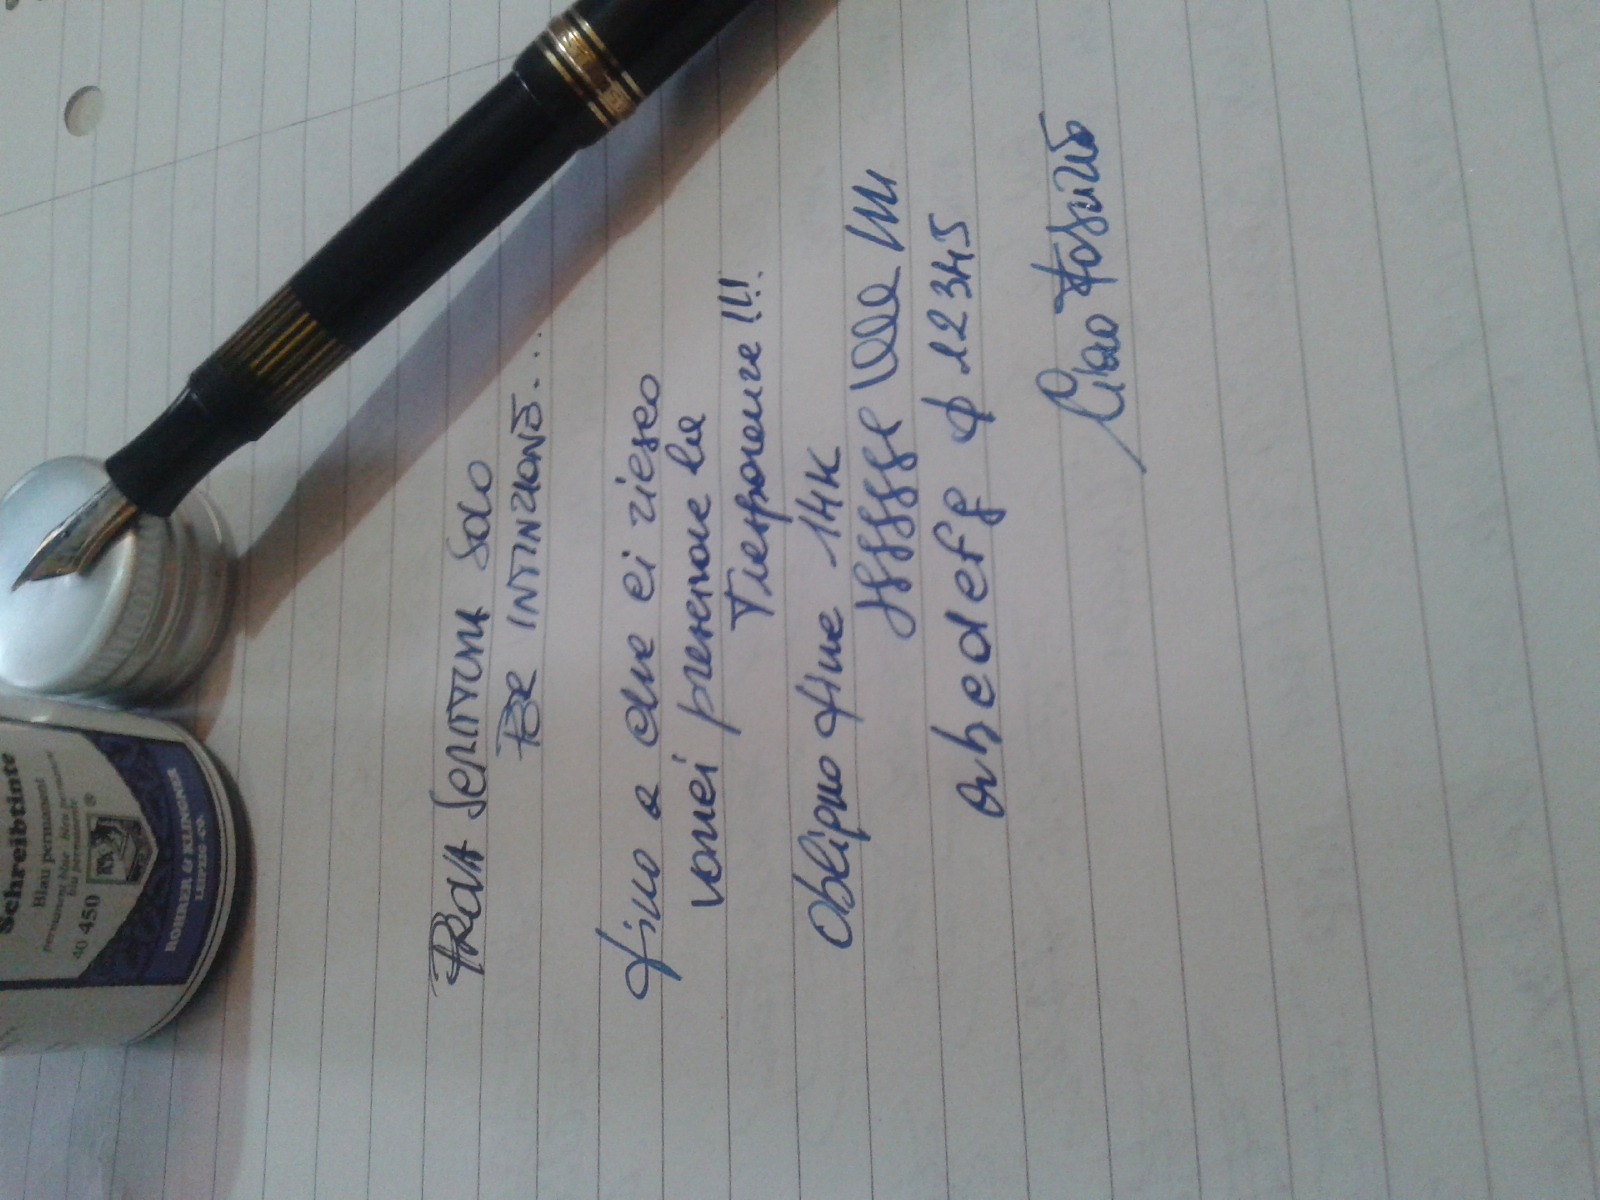 PROVA SCRITTURA SOLO
PER INTINZIONE...
fino a che ci riesco
vorrei preservare la
Trasparenze!!!
Obliquo fine 14K
abcdefg φ 12345
Ciao Fabrizio
Schreibtinte
Blau permanent
permanent blue bleu permanent
blu permanente
40 450
ROHRER & KLINGNER
LEIPZIG CO.